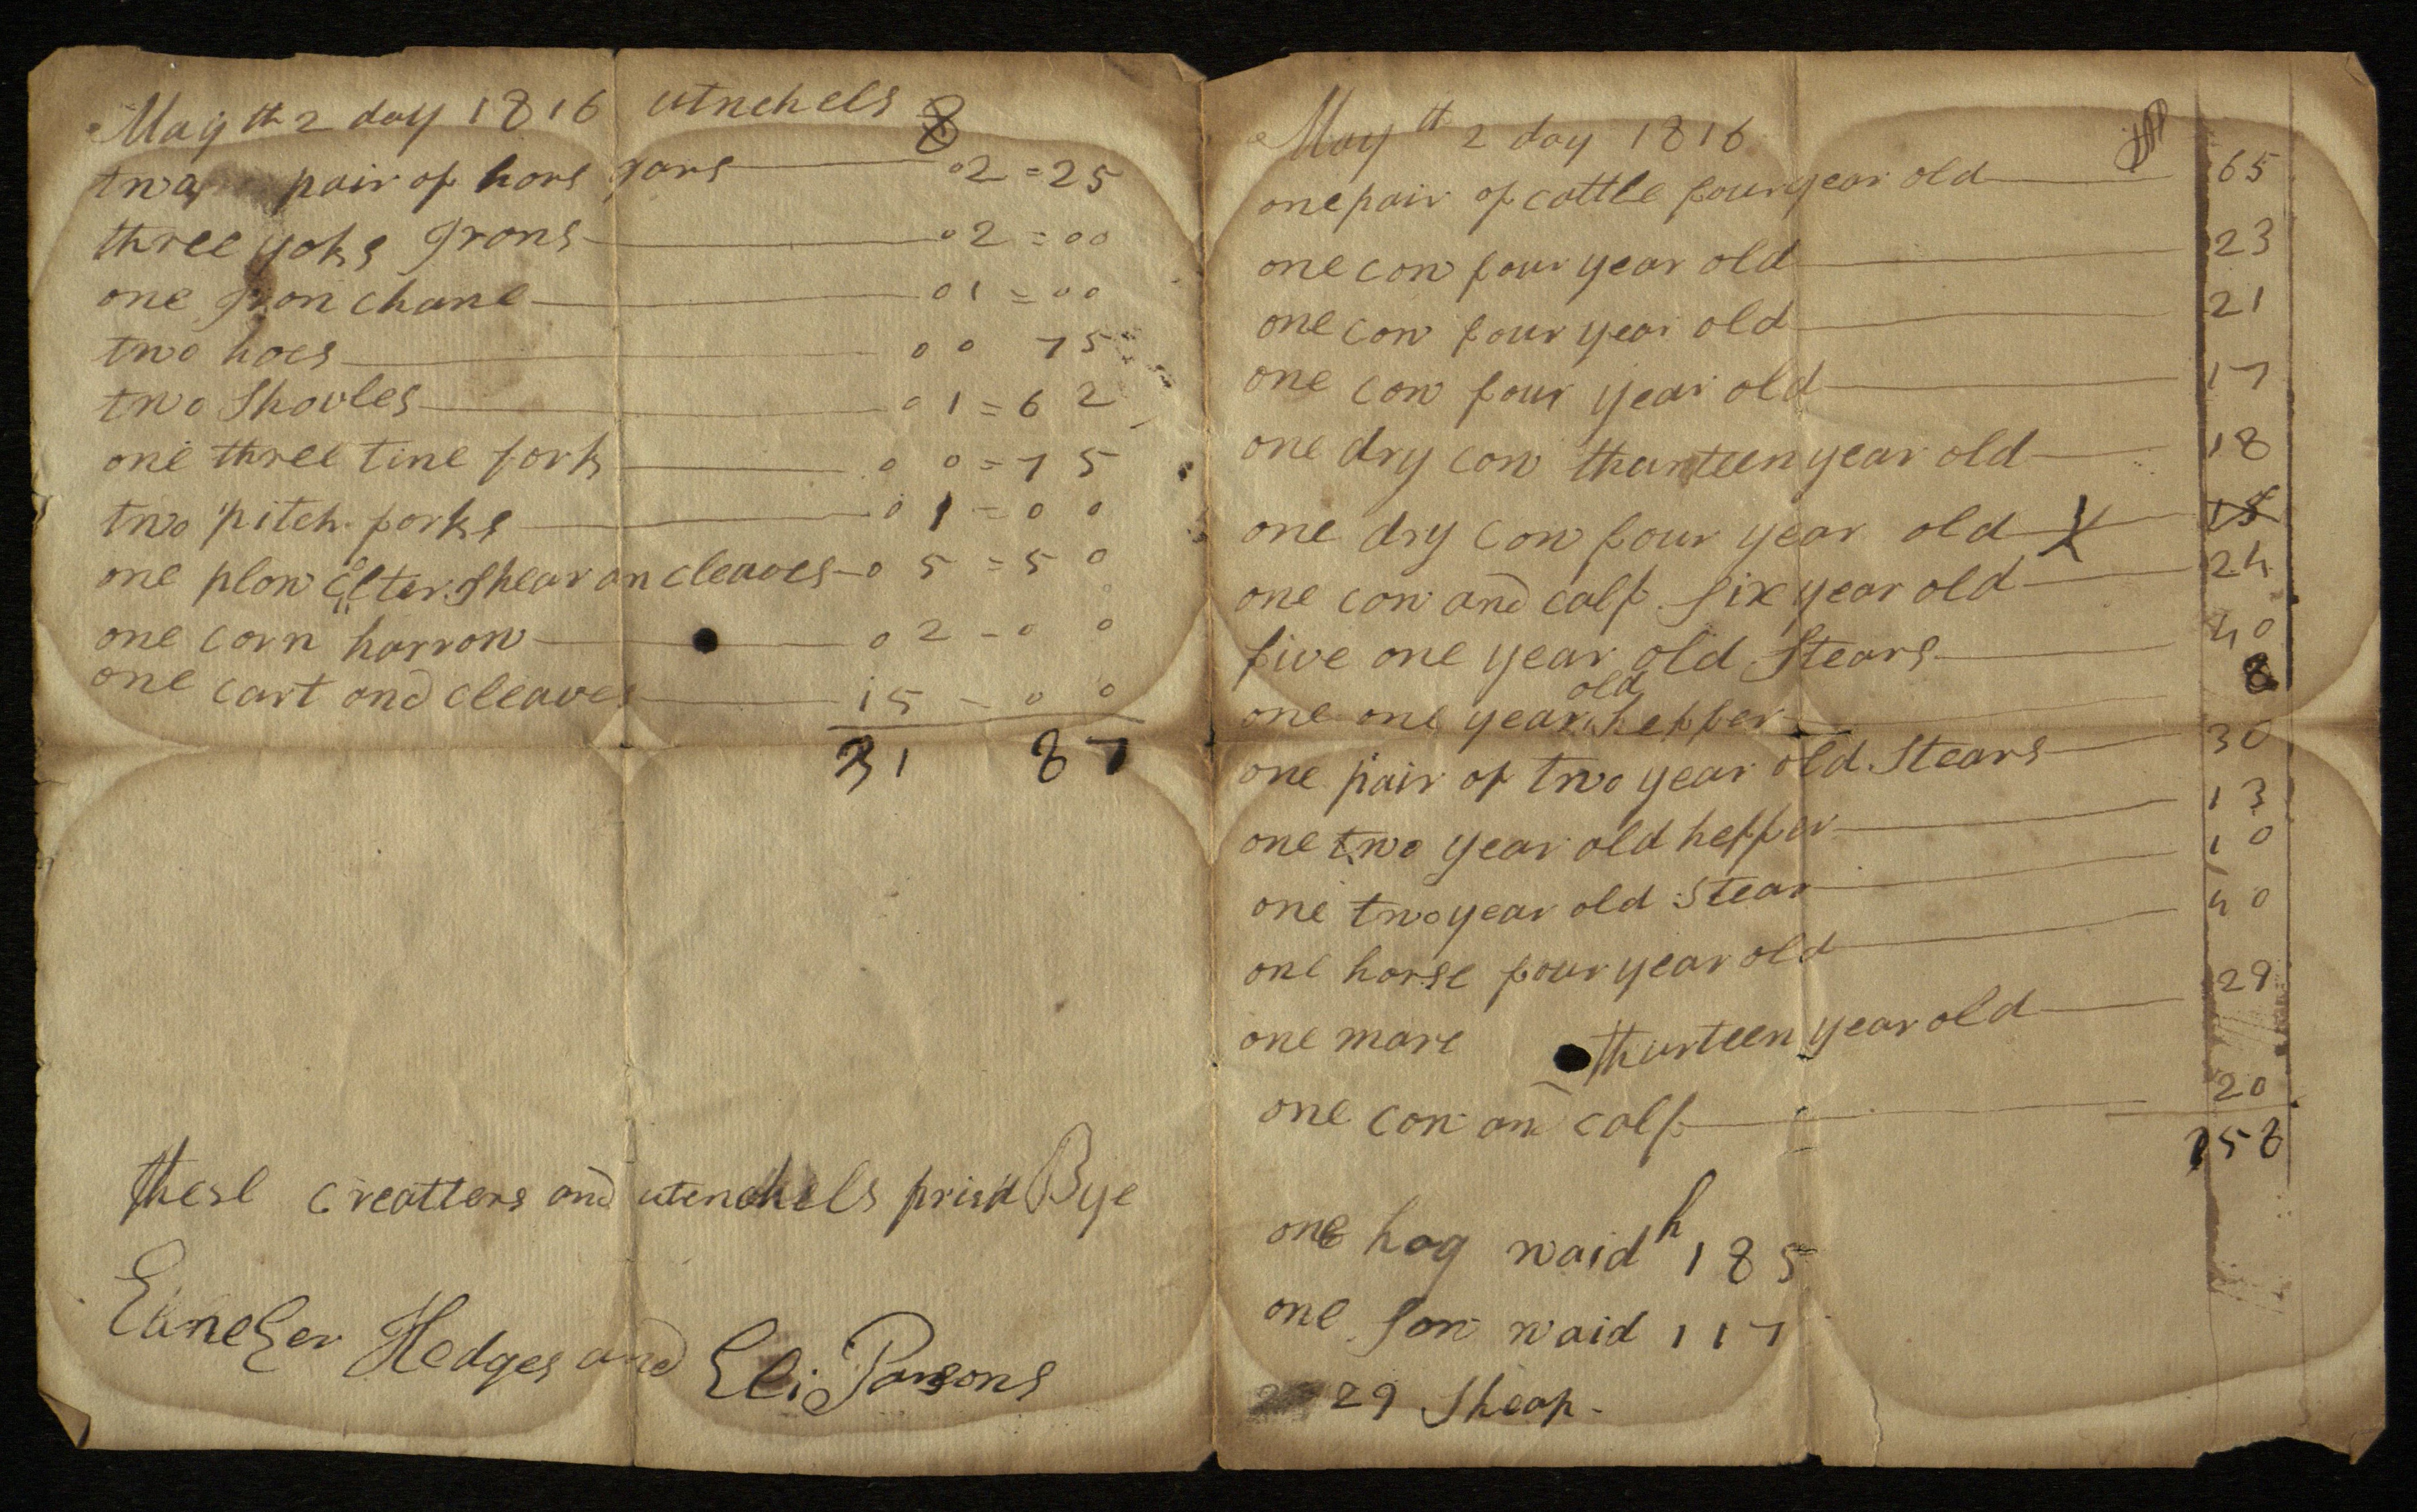 May th 2 day 1816 utnchels
two pair of hors gars 02=25
three yoks Irons 02=00
one Iron chane 01=00
two hoes 00 75
two Shovles 01=62
one three tine fork 00=75
two pitch forks 01=00
one plow Shear an cleaves 05=50
one corn harrow 02-00
one cart and cleaves 15-00
31 87
these creatters and utenchels prisd Bye
Ebnezer Hedges and Eli Parsons
May th 2 day 1816
one pair of cattle four year old 65
one cow four year old 23
one cow four year old 21
one cow four year old 17
one dry cow thurteen year old 18
one dry cow four year old X 15
one cow and calf six year old 24
five one year old Stears 40
one one year old heffer 8
one pair of two year old Stears 30
one two year old heffer 13
one two year old Stear 10
one horse four year old 40
one mare thurteen year old 29
one cow an calf 20
358
one hog waidh 185
one sow waid 117
29 Sheap